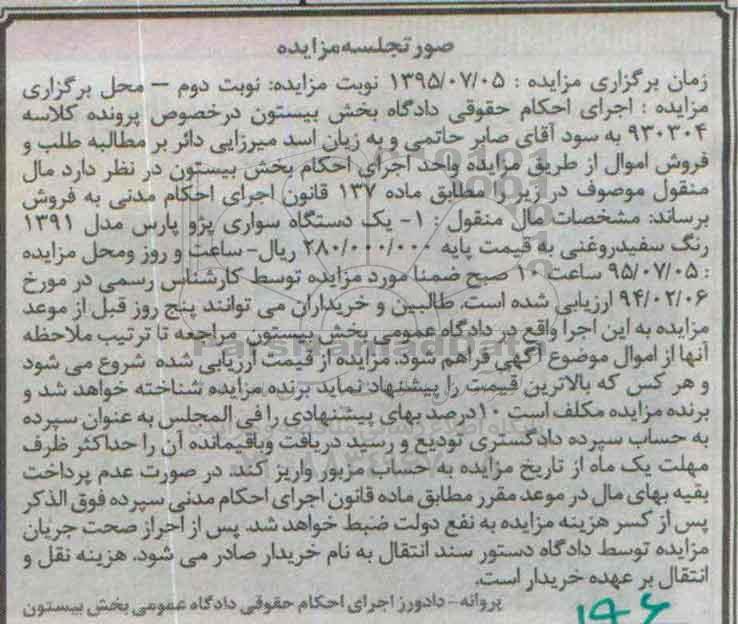 صورتجلسه مزایده
زمان برگزاری مزایده : ۱۳۹۵/۰۷/۰۵ نوبت مزایده: نوبت دوم – محل برگزاری
مزایده : اجرای احکام حقوقی دادگاه بخش بیستون درخصوص پرونده کلاسه
۹۳۰۳۰۴ به سود آقای صابر حاتمی و به زیان اسد میرزایی دائر بر مطالبه طلب و
فروش اموال از طریق مزایده واحد اجرای احکام بخش بیستون در نظر دارد مال
منقول موصوف در زیر را مطابق ماده ۱۳۷ قانون اجرای احکام مدنی به فروش
برساند: مشخصات مال منقول : ۱- یک دستگاه سواری پژو پارس مدل ۱۳۹۱
رنگ سفیدروغنی به قیمت پایه ۲۸۰/۰۰۰/۰۰۰ ریال- ساعت و روز ومحل مزایده
: ۹۵/۰۷/۰۵ ساعت ۱۰ صبح ضمنا مورد مزایده توسط کارشناس رسمی در مورخ
۹۴/۰۲/۰۶ ارزیابی شده است. طالبین و خریداران می توانند پنج روز قبل از موعد
مزایده به این اجرا واقع در دادگاه عمومی بخش بیستون مراجعه تا ترتیب ملاحظه
آنها از اموال موضوع آگهی فراهم شود. مزایده از قیمت ارزیابی شده شروع می شود
و هر کس که بالاترین قیمت را پیشنهاد نماید برنده مزایده شناخته خواهد شد و
برنده مزایده مکلف است ۱۰درصد بهای پیشنهادی را فی المجلس به عنوان سپرده
به حساب سپرده دادگستری تودیع و رسید دریافت وباقیمانده آن را حداکثر ظرف
مهلت یک ماه از تاریخ مزایده به حساب مزبور واریز کند. در صورت عدم پرداخت
بقیه بهای مال در موعد مقرر مطابق ماده قانون اجرای احکام مدنی سپرده فوق الذکر
پس از کسر هزینه مزایده به نفع دولت ضبط خواهد شد. پس از احراز صحت جریان
مزایده توسط دادگاه دستور سند انتقال به نام خریدار صادر می شود. هزینه نقل و
انتقال بر عهده خریدار است.
پروانه – دادورز اجرای احکام حقوقی دادگاه عمومی بخش بیستون
۱۹۶
ParsNamadData